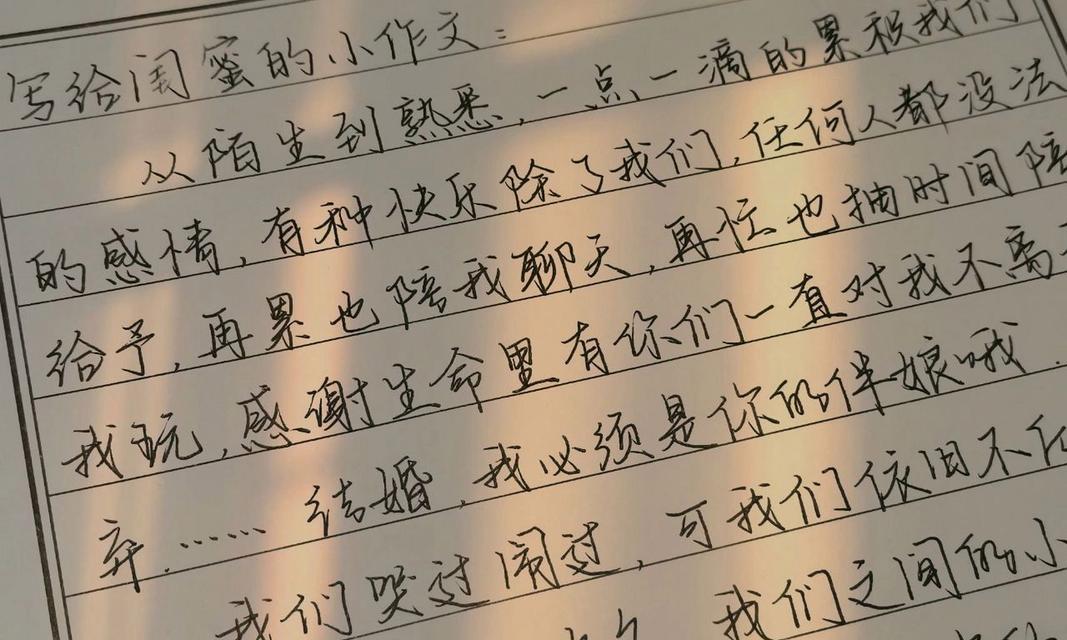 写给闺蜜的小作文:
从陌生到熟悉,一点一滴的累积我们
的感情,有种快乐除了我们,任何人都没法
给予,再累也陪我聊天,再忙也抽时间陪
我玩,感谢生命里有你们一直对我不离不
弃……结婚,我必须是你的伴娘哦.
我们哭过闹过,可我们依旧不
我们之间的小